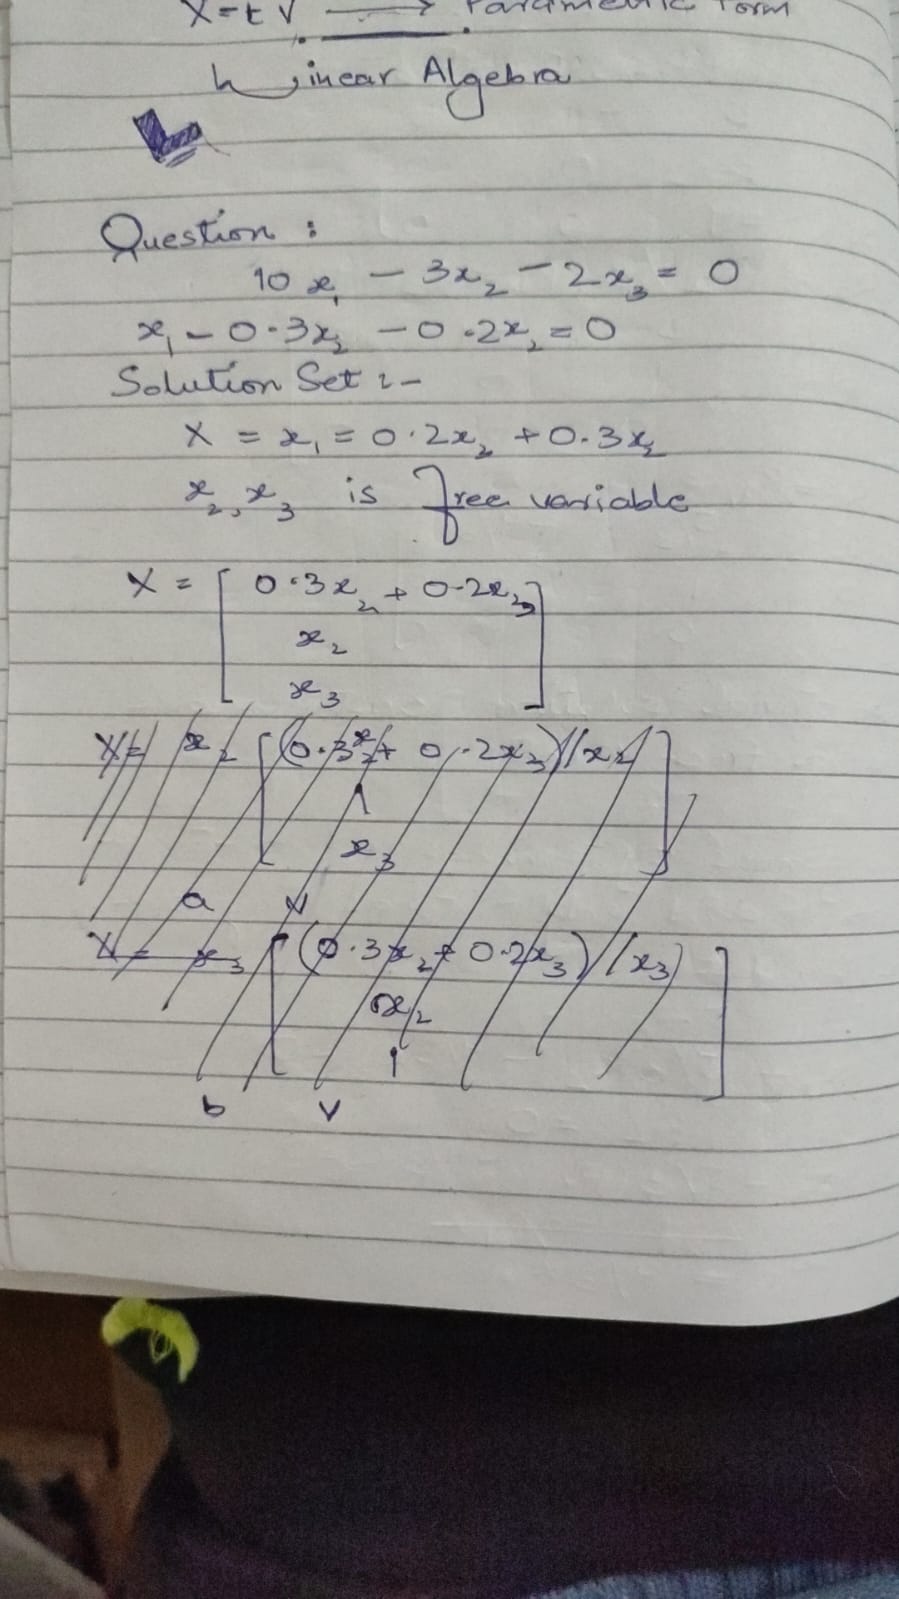 X = t V → Parametric Form
Linear Algebra
Question :
10 x₁ - 3x₂ - 2x₃ = 0
x₁ - 0.3x₂ - 0.2x₂ = 0
Solution Set :-
X = x₁ = 0.2x₂ + 0.3x₂
x₂, x₃ is free variable
X = [ 0.3x₂ + 0.2x₃ ]
x₂
x₃
X = x₂ [ (0.3x₂ + 0.2x₃)/(x₂ ]
1
x₃
a v
X = x₃ [ (0.3x₂ + 0.2x₃)/(x₃) ]
x₂
1
b v